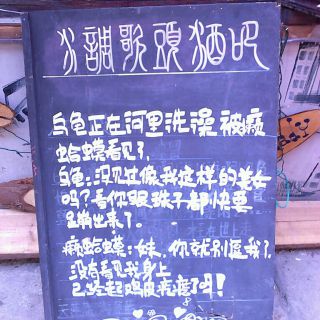 水調歌頭酒吧
乌龟正在河里洗澡被癞
蛤蟆看见了.
乌龟:没见过像我这样的美女
吗?看你眼珠子都快要
蹦出来了.
癞蛤蟆:妹,你就别逗我了,
没有看见我身上
已经起鸡皮疙瘩了吗!